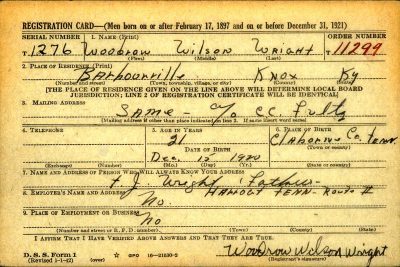 REGISTRATION CARD—(Men born on or after February 17, 1897 and on or before December 31, 1921)
SERIAL NUMBER 1. NAME (Print) ORDER NUMBER
T1276 Woodrow Wilson Wright 11299
(First) (Middle) (Last)
2. PLACE OF RESIDENCE (Print)
Barbourville Knox Ky
(Number and street) (Town, township, village, or city) (County) (State)
[THE PLACE OF RESIDENCE GIVEN ON THE LINE ABOVE WILL DETERMINE LOCAL BOARD
JURISDICTION; LINE 2 OF REGISTRATION CERTIFICATE WILL BE IDENTICAL]
3. MAILING ADDRESS
Same c/o C.C. Fultz
[Mailing address if other than place indicated on line 2. If same insert word same]
4. TELEPHONE 5. AGE IN YEARS 6. PLACE OF BIRTH
21 Claborne Co.
DATE OF BIRTH (Town or county)
Dec. 1920 Tenn.
(Exchange) (Number) (Mo.) (Day) (Yr.) (State or country)
7. NAME AND ADDRESS OF PERSON WHO WILL ALWAYS KNOW YOUR ADDRESS
Wright Father
Tenn Route #
8. EMPLOYER'S NAME AND ADDRESS
No
9. PLACE OF EMPLOYMENT OR BUSINESS
No
(Number and street or R. F. D. number) (Town) (County) (State)
I AFFIRM THAT I HAVE VERIFIED ABOVE ANSWERS AND THAT THEY ARE TRUE.
D. S. S. Form 1 GPO 16—21630-2 Woodrow Wilson Wright
(Revised 1-1-42) (over) (Registrant's signature)